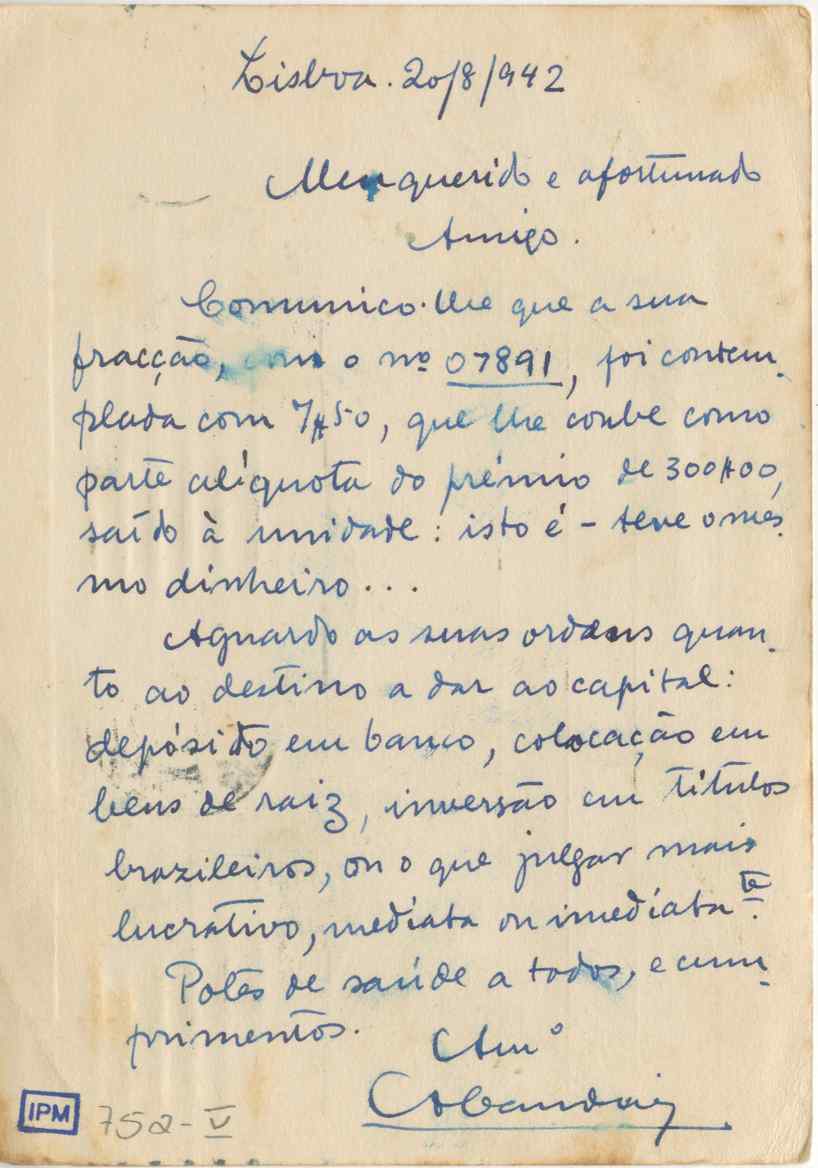 Lisboa. 20/8/942
Meu querido e afortunado
Amigo.
Comunico-lhe que a sua
fracção, com o nº 07891, foi contem-
plada com 7$50, que lhe coube como
parte alíquota do prémio de 300$00,
saído à unidade: isto é - teve o més-
mo dinheiro...
Aguardo as suas ordens quan-
to ao destino a dar ao capital:
depósito em banco, colocação em
bens de raiz, inversão em títulos
brazileiros, ou o que julgar mais
lucrativo, mediata ou imediata.te
Potes de saúde a todos, e cum-
primentos.
Amº
IPM 752-V